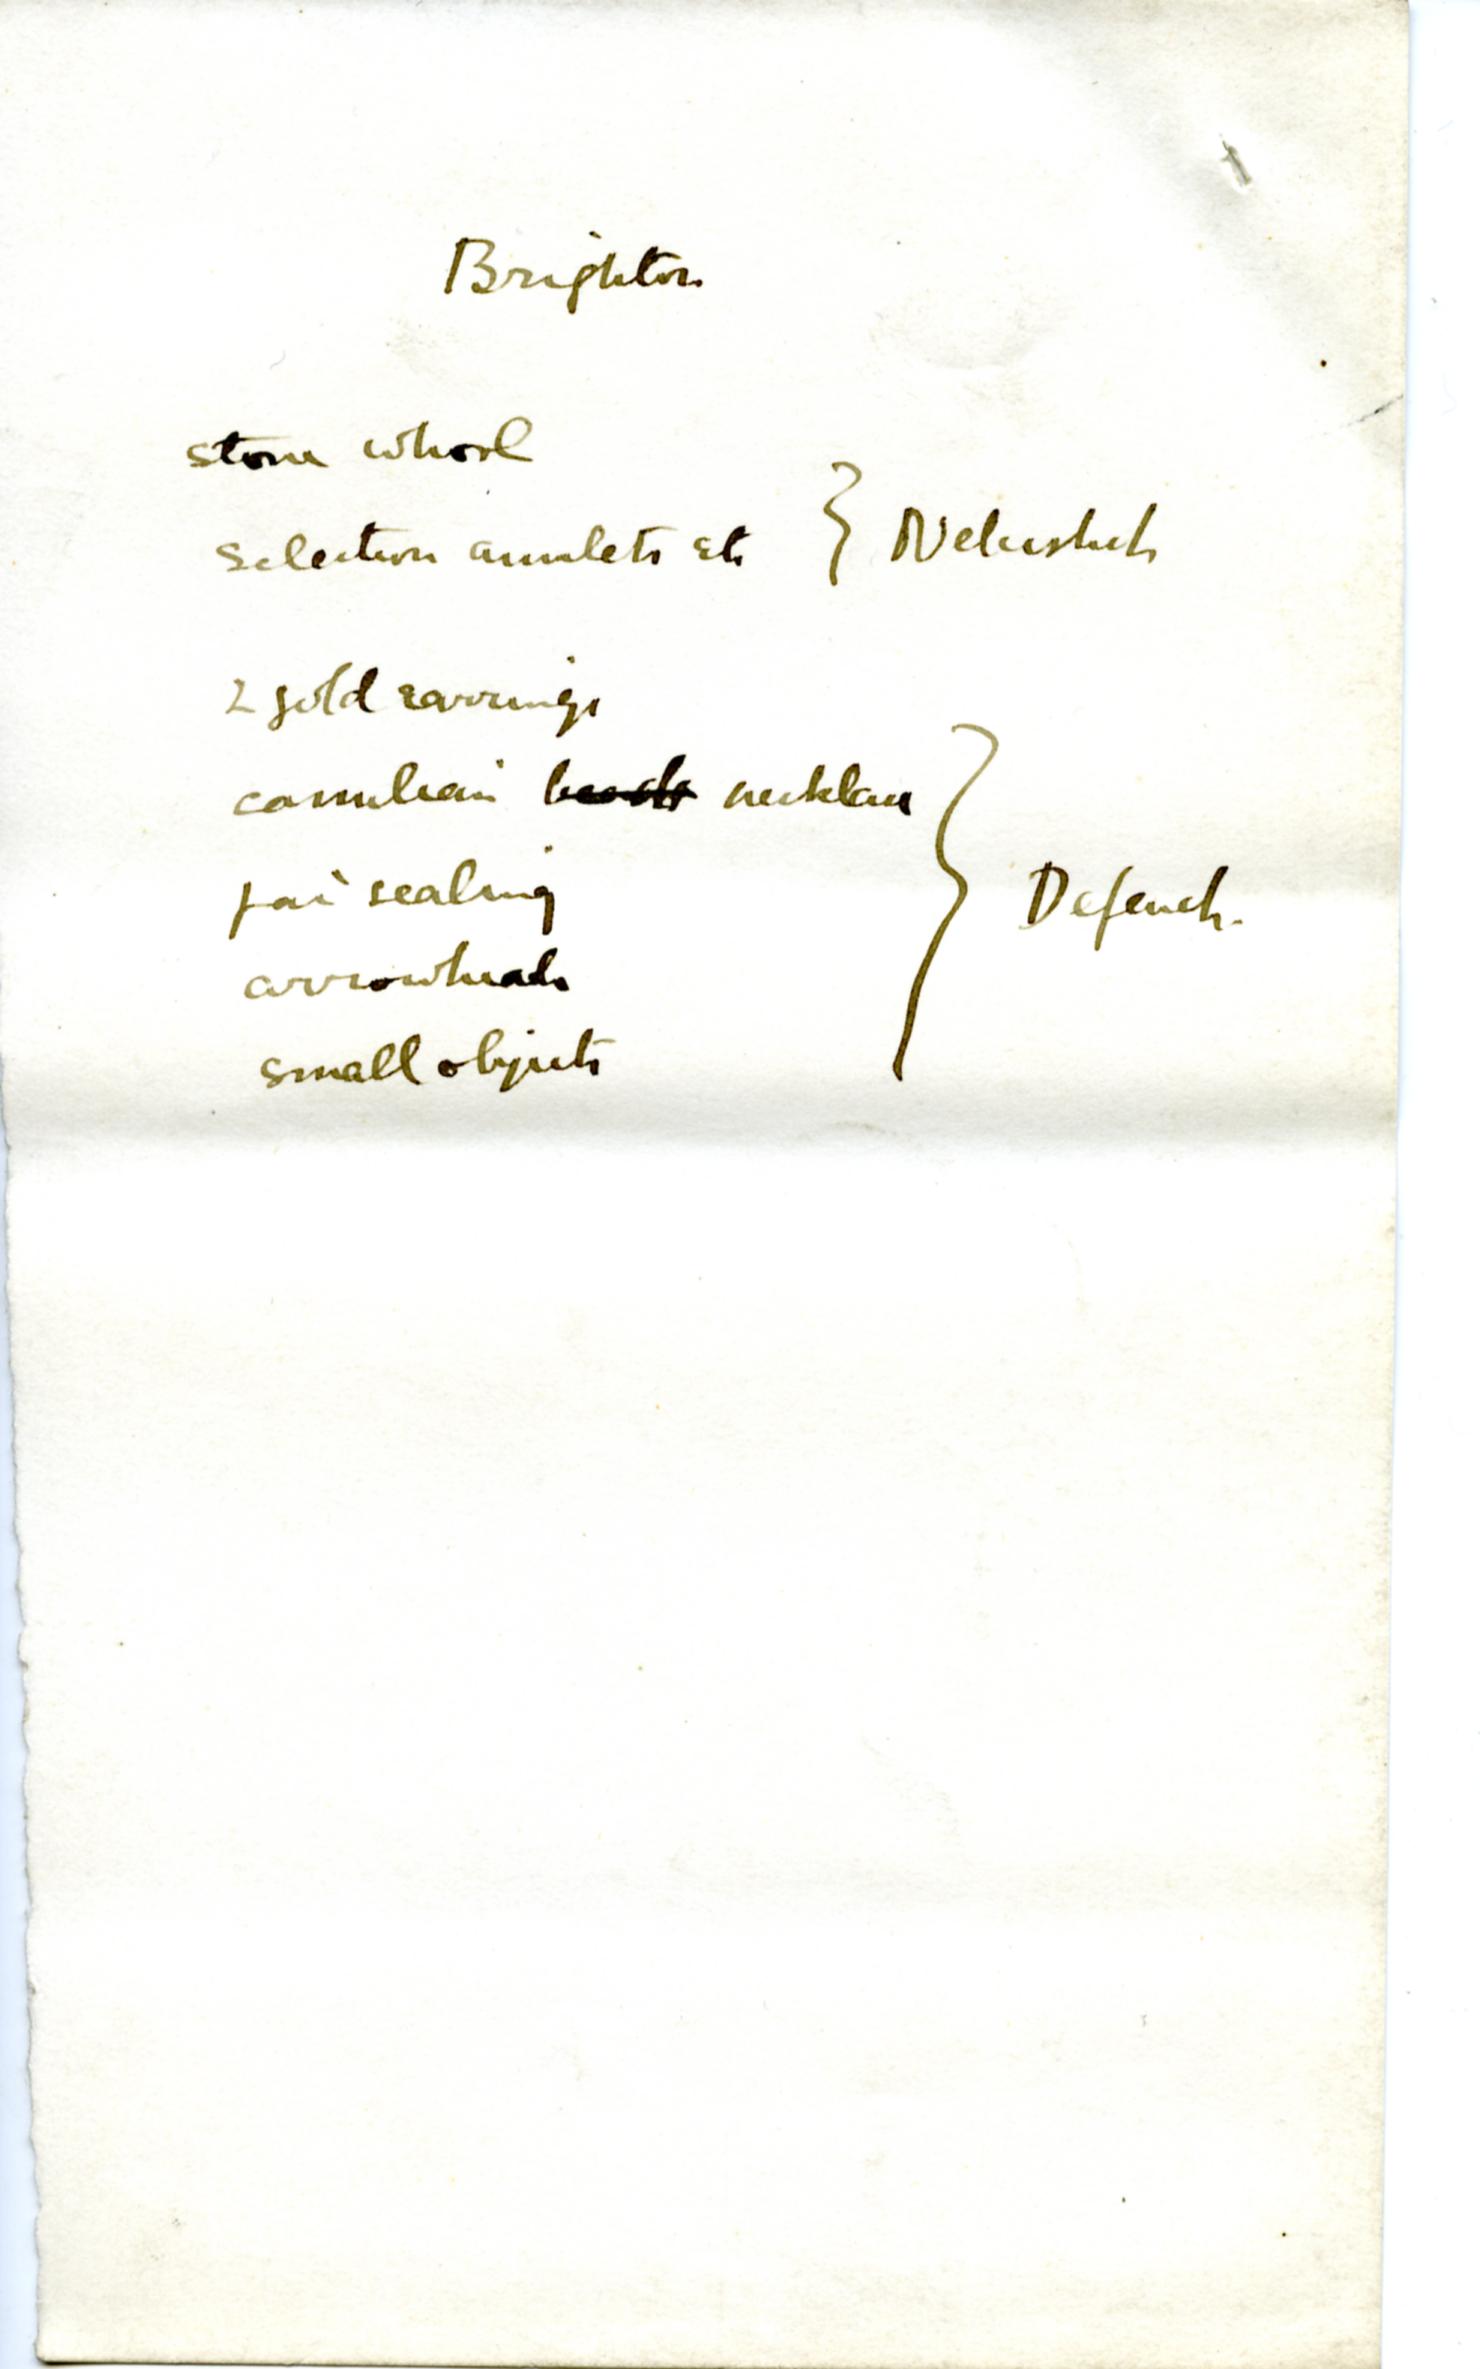 Brighton
stone whorl
selection amulets etc } Nebesheh
2 gold earrings
carnelian beads necklace
jar sealing
arrowheads
small objects
} Defeneh.